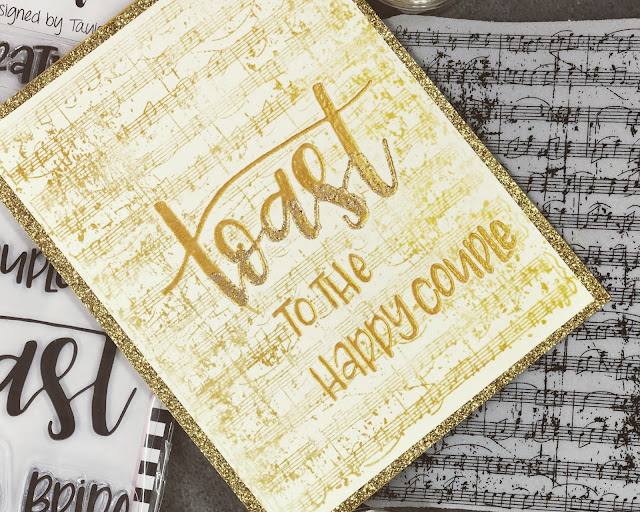 toast
TO THE
HAPPY COUPLE
signed by Tayl
eati
uple
ast
BRIDA